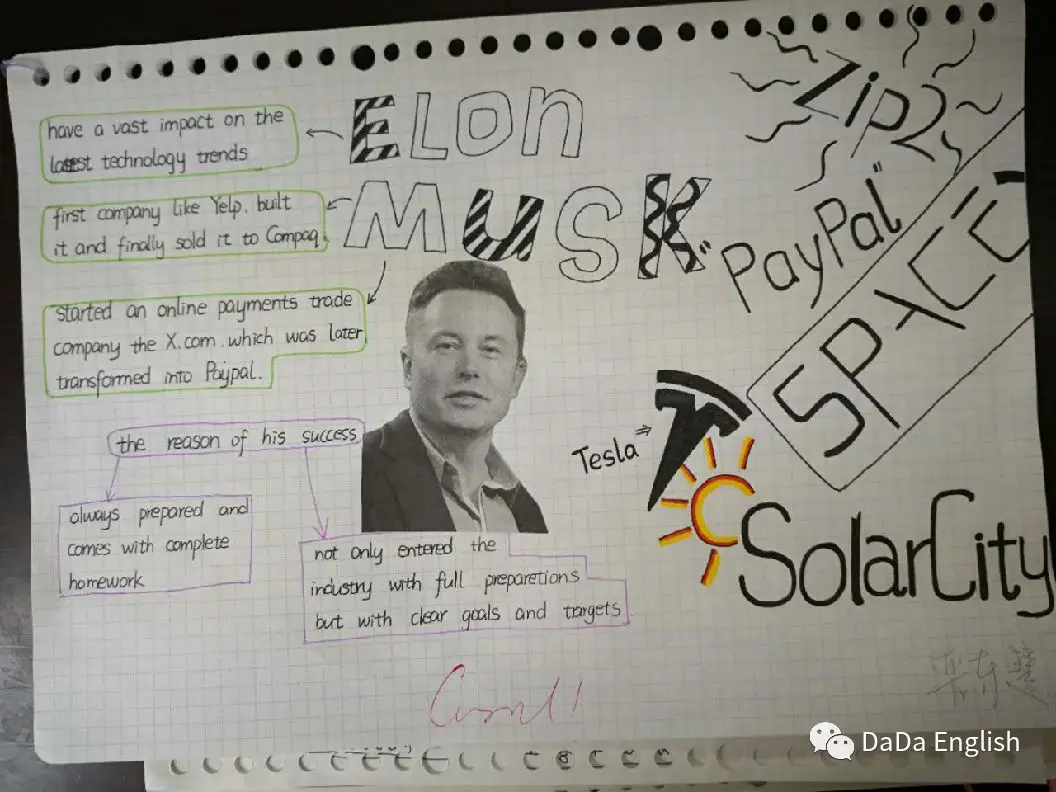 ELON
MUSK
have a vast impact on the
latest technology trends
first company like Yelp. built
it and finally sold it to Compaq.
started an online payments trade
company the X.com. which was later
transformed into Paypal.
the reason of his success
always prepared and
comes with complete
homework
not only entered the
industry with full preparetions
but with clear goals and targets
Zip2
"PayPal"
SPACE
Tesla
SolarCity
DaDa English